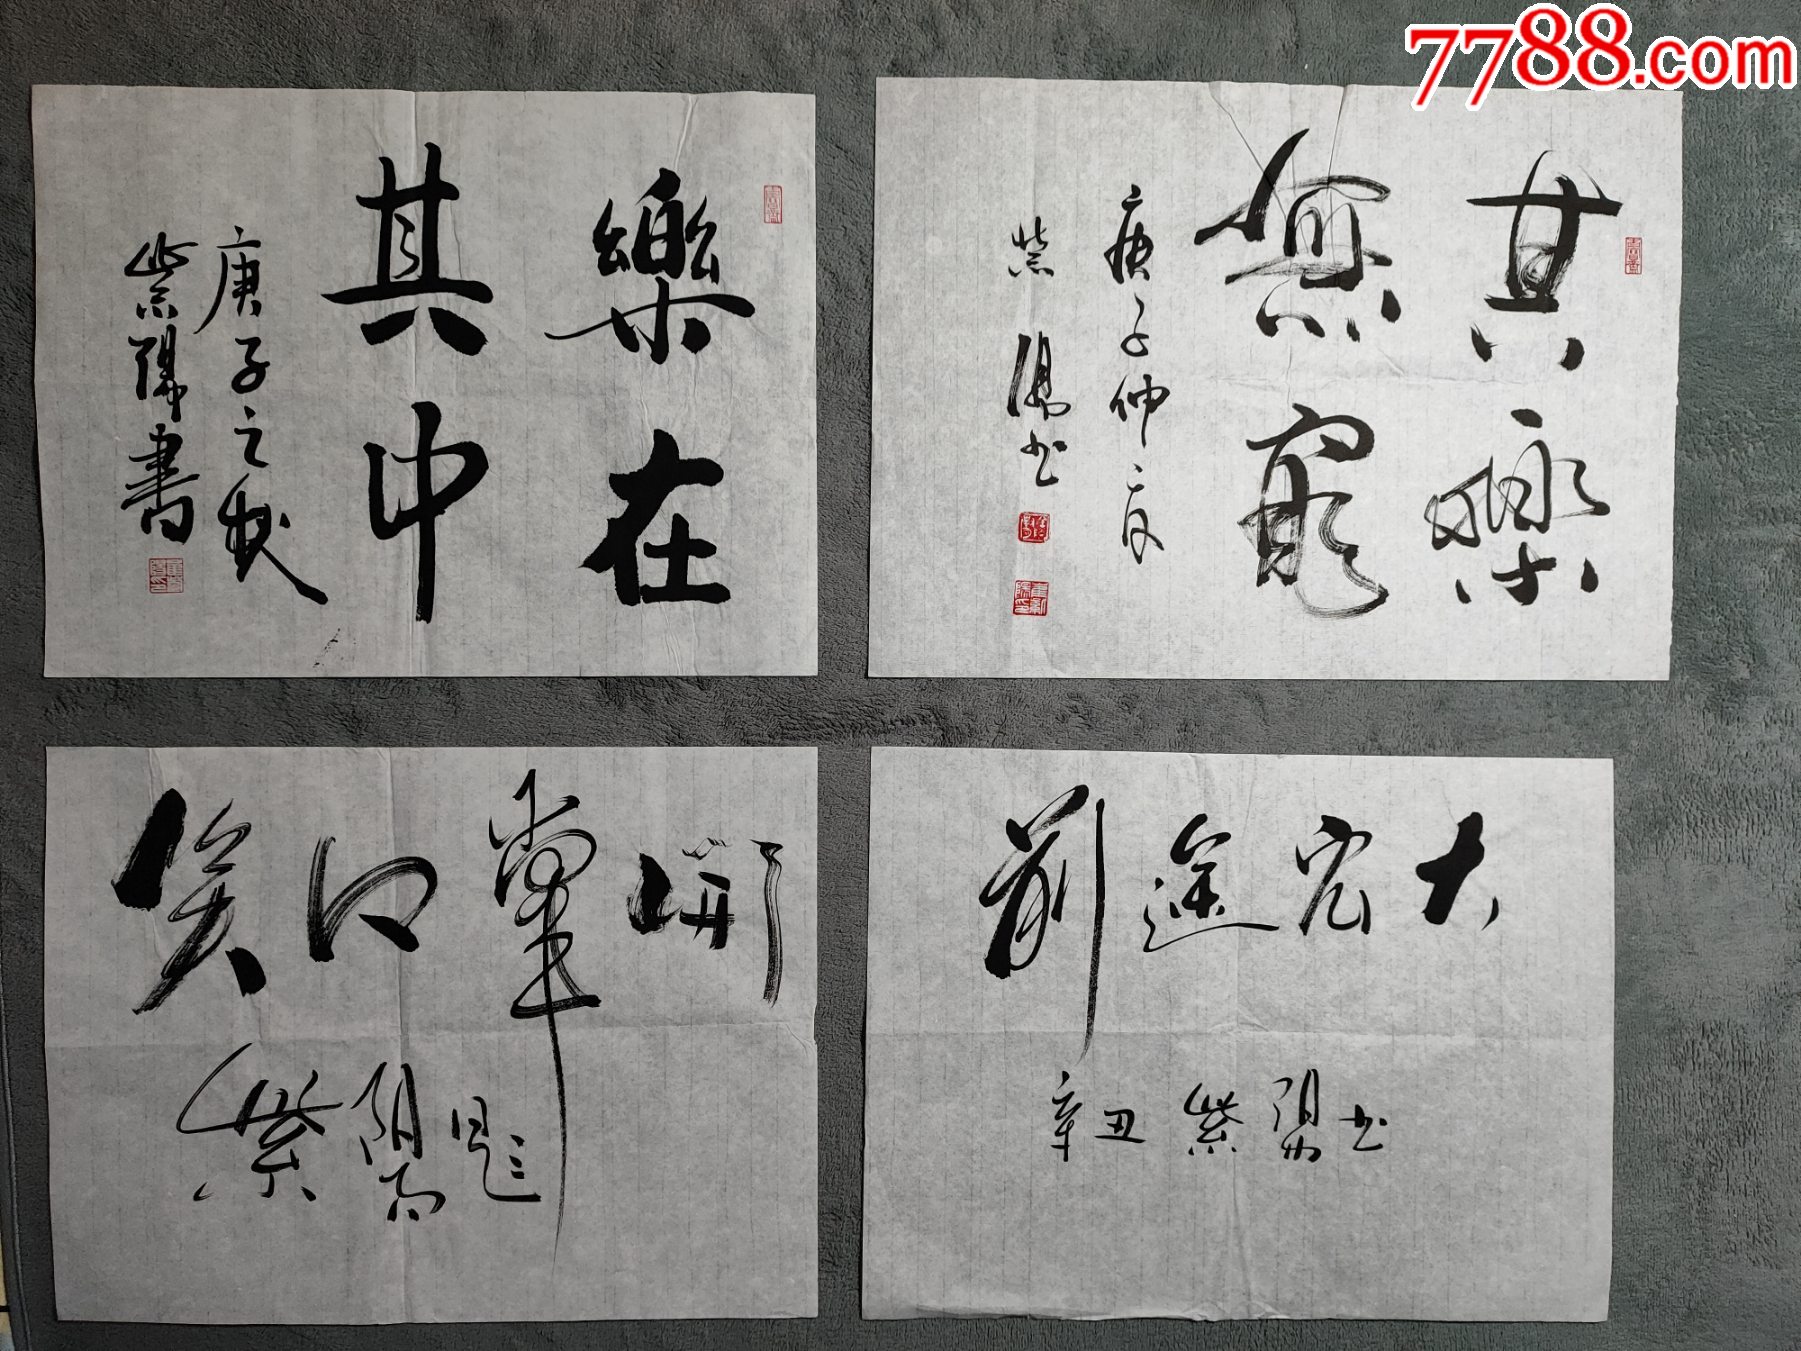 7788.com
樂在
其中
庚子之秋
紫陽書
其樂
無窮
庚子仲夏
紫陽书
笑口常開
紫陽題
前途宏大
辛丑紫陽书